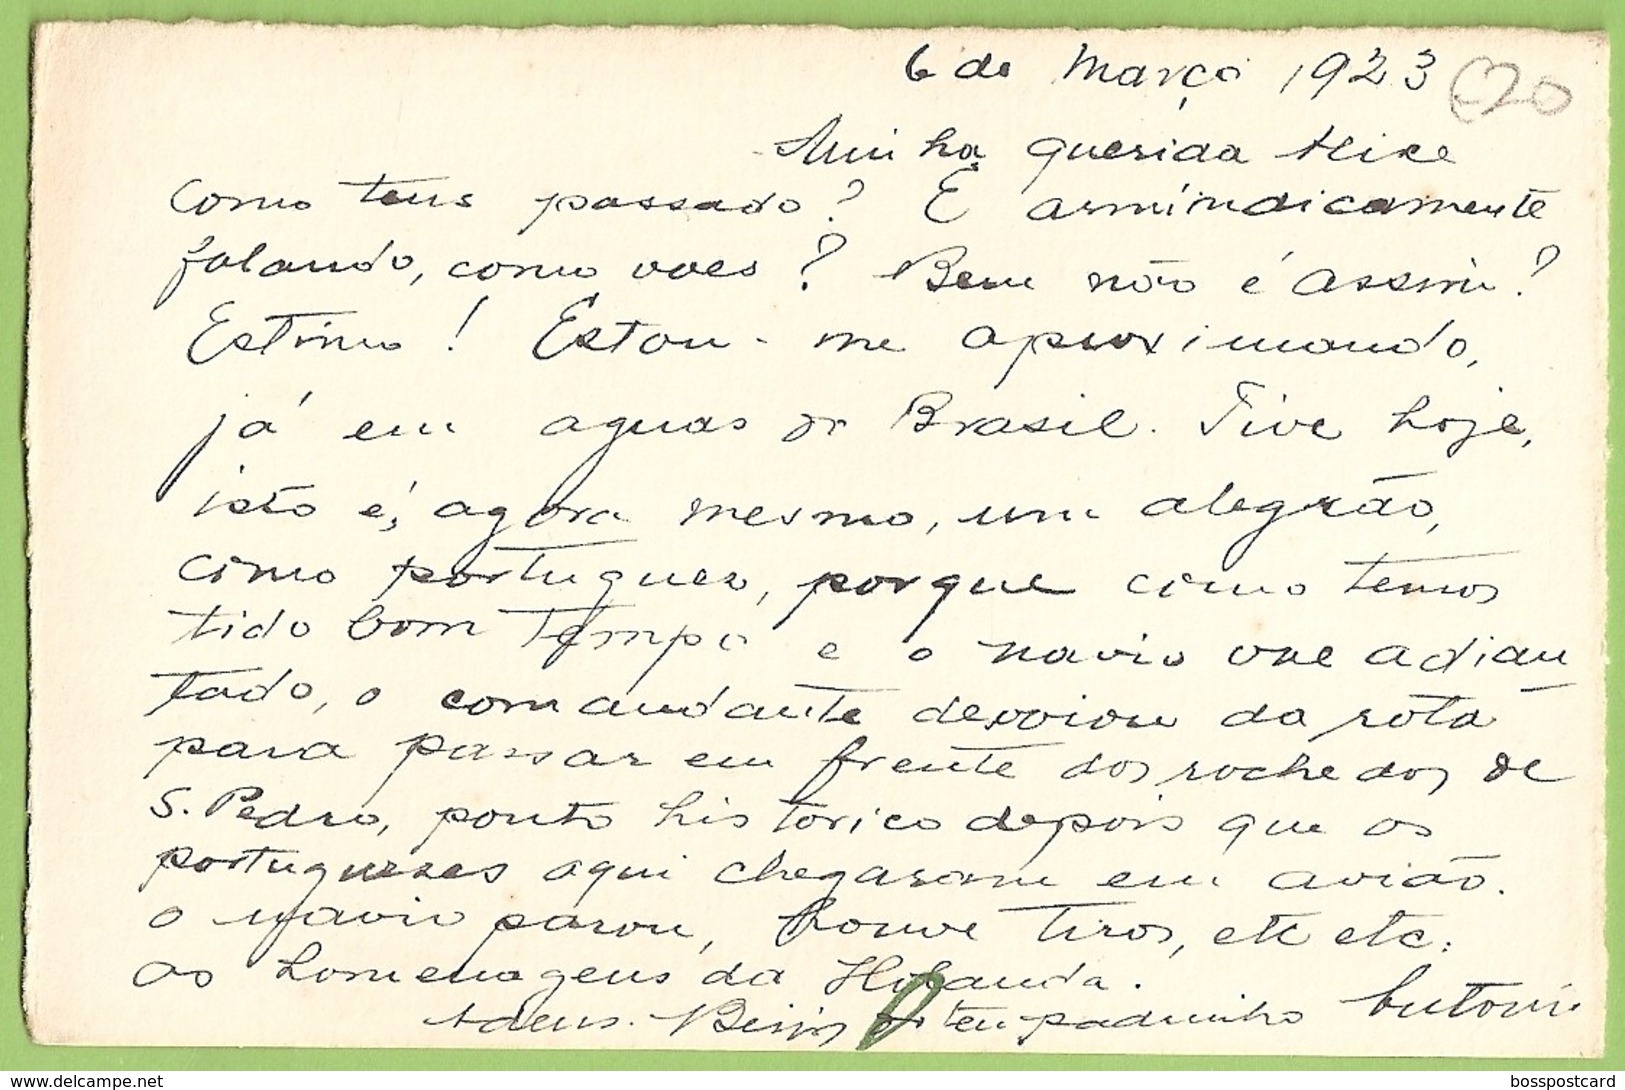 6 de Março 1923
20
Minha querida Alice
Como tens passado? E armindicamente
falando, como vaes? Bem não é assim?
Estimo! Estou-me aproximando,
já em aguas do Brasil. Tive hoje,
isto é, agora mesmo, um alegrão,
como portuguez, porque como temos
tido bom tempo e o navio vae adian
tado, o comandante desviou da rota
para passar em frente dos rochedos de
S. Pedro, ponto historico depois que os
portugueses aqui chegaram em avião.
O navio parou, houve tiros, etc etc:
as homenagens da Holanda.
Adeus. Beijos do teu padrinho Antonio
bosspostcard